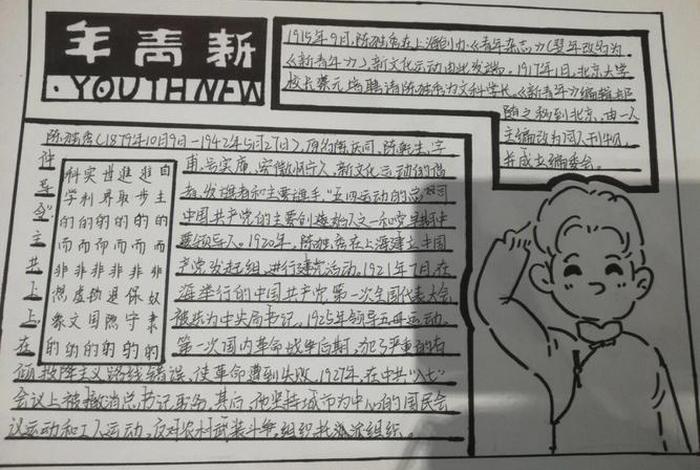 年青新
·YOUTH NEW
1915年9月，陈独秀在上海创办《青年杂志》（翌年改名为
《新青年》），新文化运动由此发端。1917年1月，北京大学
校长蔡元培聘请陈独秀为文科学长，《新青年》编辑部
随之移到北京，由一人
主编改为同人刊物，
并成立编委会。
陈独秀（1879年10月9日—1942年5月27日），原名庆同，
甫，号实庵，安徽怀宁人，新文化运动的倡
者、发起者和主要旗手，“五四运动的总司
中国共产党的主要创始人之一和党早期主
要领导人。1920年，陈独秀在上海建立中国
产党发起组，进行建党活动。1921年7月，在
海举行的中国共产党第一次全国代表大会
被选为中央局书记。1925年领导五卅运动。
第一次国内革命战争后期，犯了严重的右
倾投降主义路线错误，使革命遭到失败。1927年，在中共“八七”
会议上被撤消总书记职务。其后，他坚持城市为中心的国民会
议运动和工人运动，反对农村武装斗争，组织托派组织。
科实世进进自
学利界取步主
的的的的的的
而而而而而而
非非非非非非
想虚锁退保奴
象文国隐守隶
的的的的的的